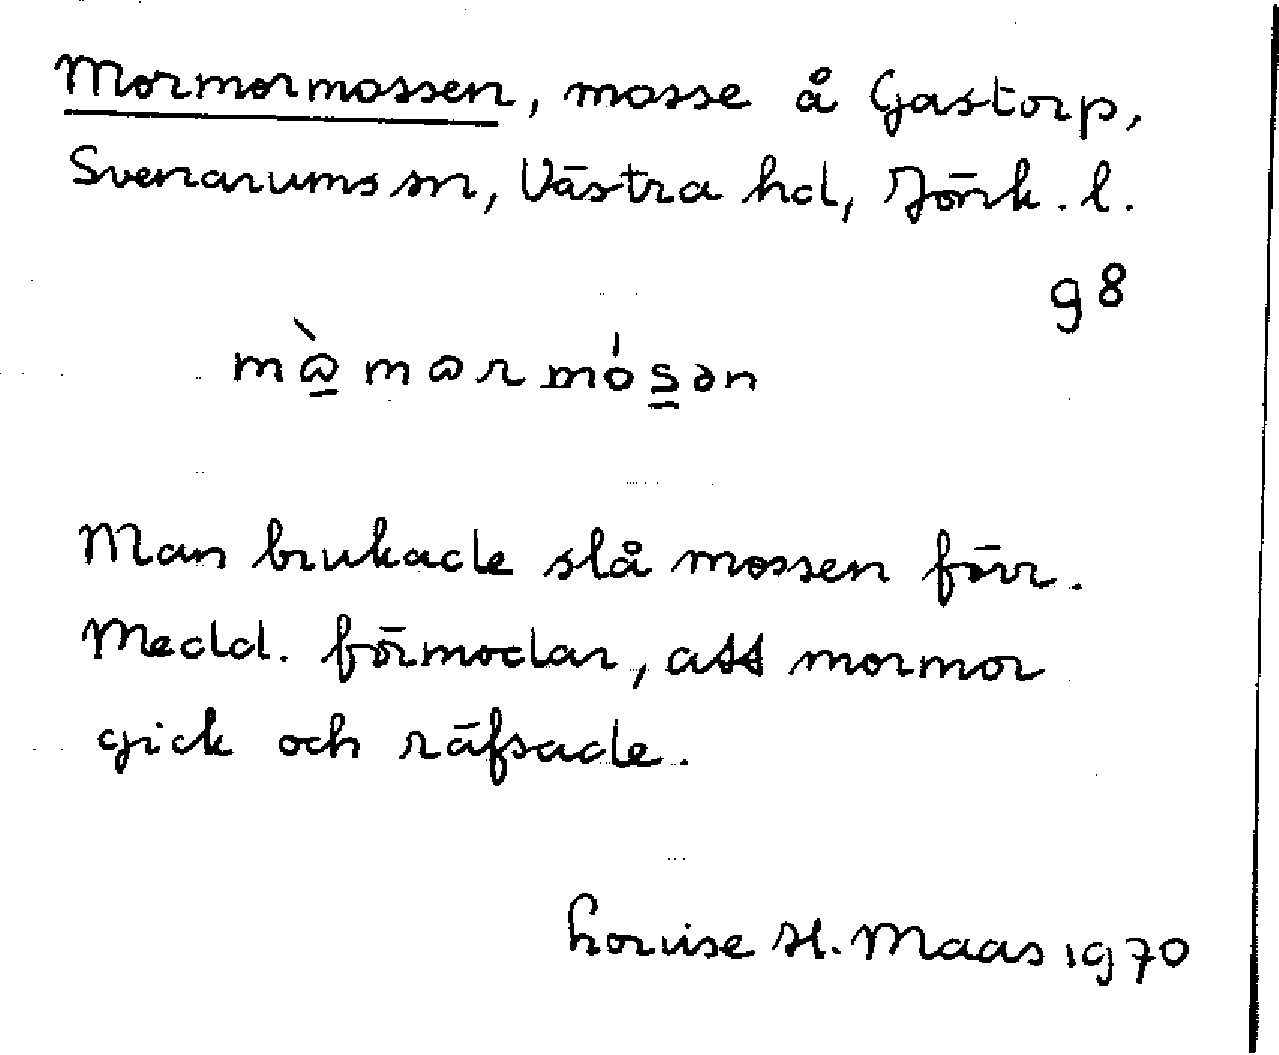 Mormormossen, mosse å Gastorp,
Svenarums sn, Västra hd, Jönk. l.
98
mὼmωrmósən
Man brukade slå mossen förr.
Medd. förmodar, att mormor
gick och räfsade.
H. Maas 1970